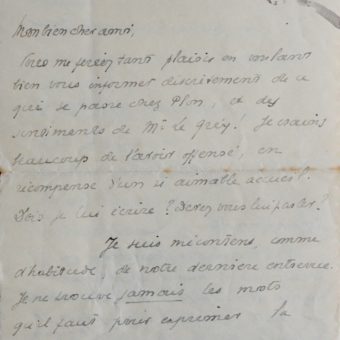 Mon bien cher ami,
Vous me feriez tant plaisir en voulant
bien vous informer discrètement de ce
qui se passe chez Plon, et des
sentiments de Mr le Grix! Je crains
beaucoup de l'avoir offensé, en
récompense d'un si aimable accueil!
Dois-je lui écrire? Devez vous lui parler?
Je suis mécontent, comme
d'habitude, de notre dernière entrevue.
Je ne trouve jamais les mots
qu'il faut pour exprimer la